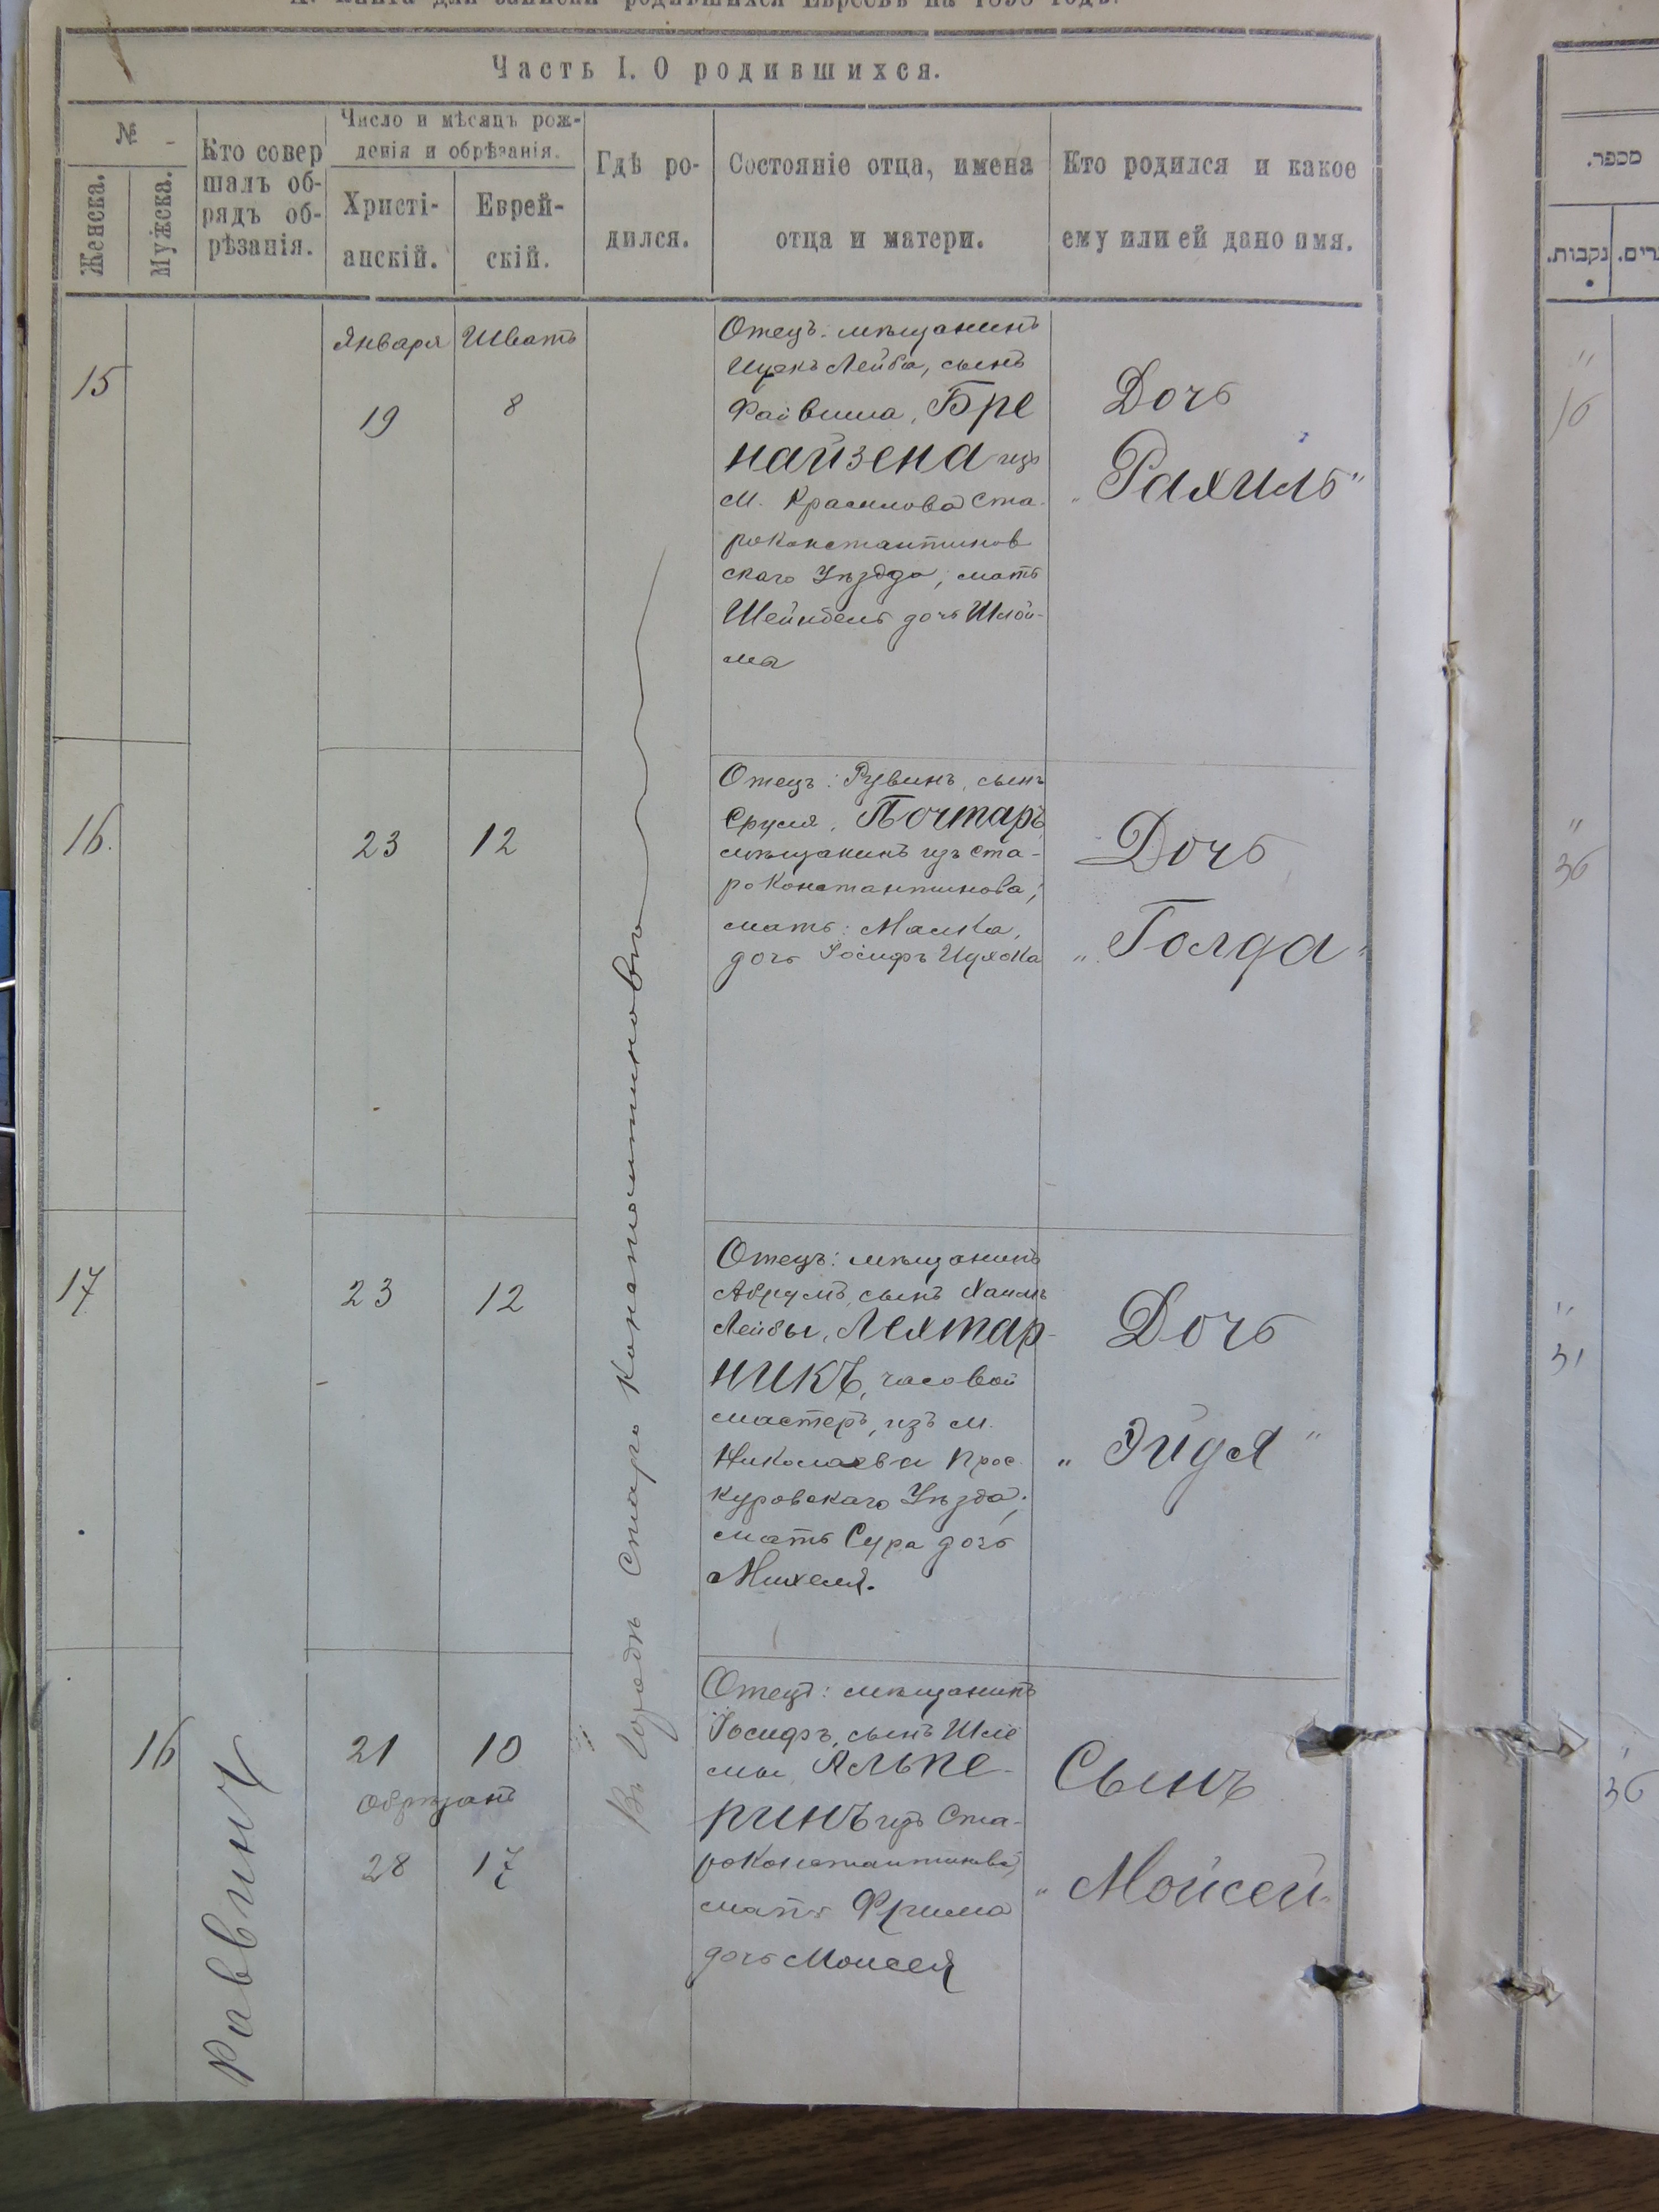 Часть I. О родившихся.
№
Женска.
Мужска.
Кто совер
шалъ об-
рядъ об-
рѣзанія.
Число и мѣсяцъ рож-
денія и обрѣзанія.
Христі-
анскій.
Еврей-
скій.
Гдѣ ро-
дился.
Состояніе отца, имена
отца и матери.
Кто родился и какое
ему или ей дано имя.
15
Января
19
Шватъ
8
Отецъ: мѣщанинъ
Лейба, сынъ
Файвиша, Бре
найзена изъ
м. Красилова Ста-
роконстантинов
скаго Уѣзда, мать
Шейндель дочь Шлой-
ма
Дочь
„Рахиль"
16.
23
12
Отецъ: Рувинъ, сынъ
Сруля, Почтаръ
мѣщанинъ изъ Ста-
роконстантинова;
мать: Малка,
дочь Іосифъ Ицхока
Дочь
„Голда"
17
23
12
Отецъ: мѣщанинъ
Абрумъ, сынъ Хаимъ
Лейбы, Лехтар-
никъ, часовой
мастеръ, изъ м.
Николаева Прос
куровскаго Уѣзда;
мать Сура дочь
Михеля.
Дочь
„Эйдя"
16
21
10
Обрѣзанъ
28
17
Отецъ: мѣщанинъ
Іосифъ, сынъ Шле
мы Альпе-
ринъ изъ Ста-
роконстантинова;
мать Фрима
дочь Моисея
Сынъ
„Мойсей"
Раввинъ
Въ Городѣ Старо Константиновѣ
מספר.
נקבות.
"
16
"
"
31
"